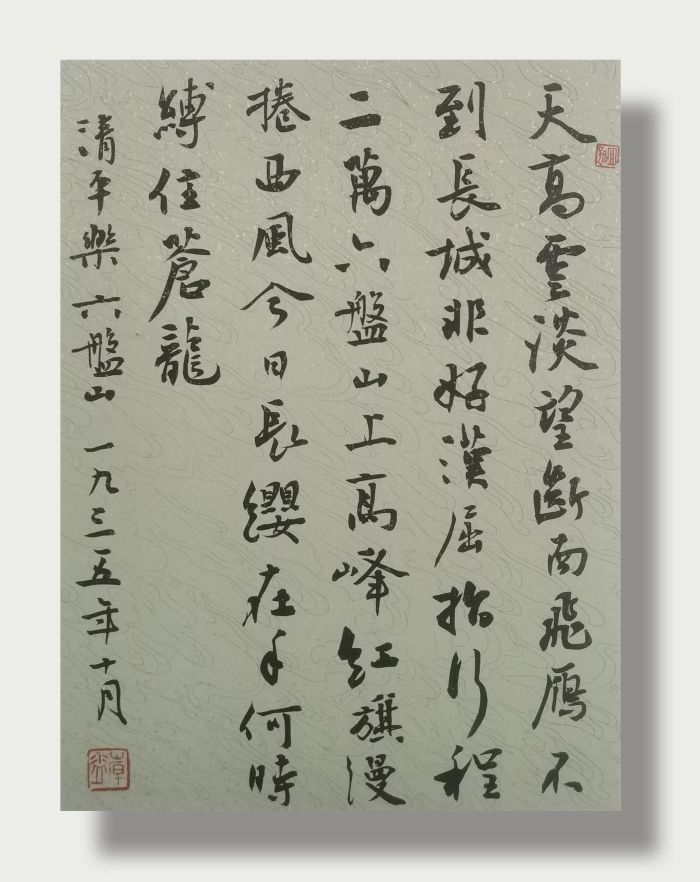 天高雲淡望斷南飛雁不
到長城非好漢屈指行程
二萬六盤山上高峰紅旗漫
捲西風今日長纓在手何時
縛住蒼龍
清平樂六盤山 一九三五年十月